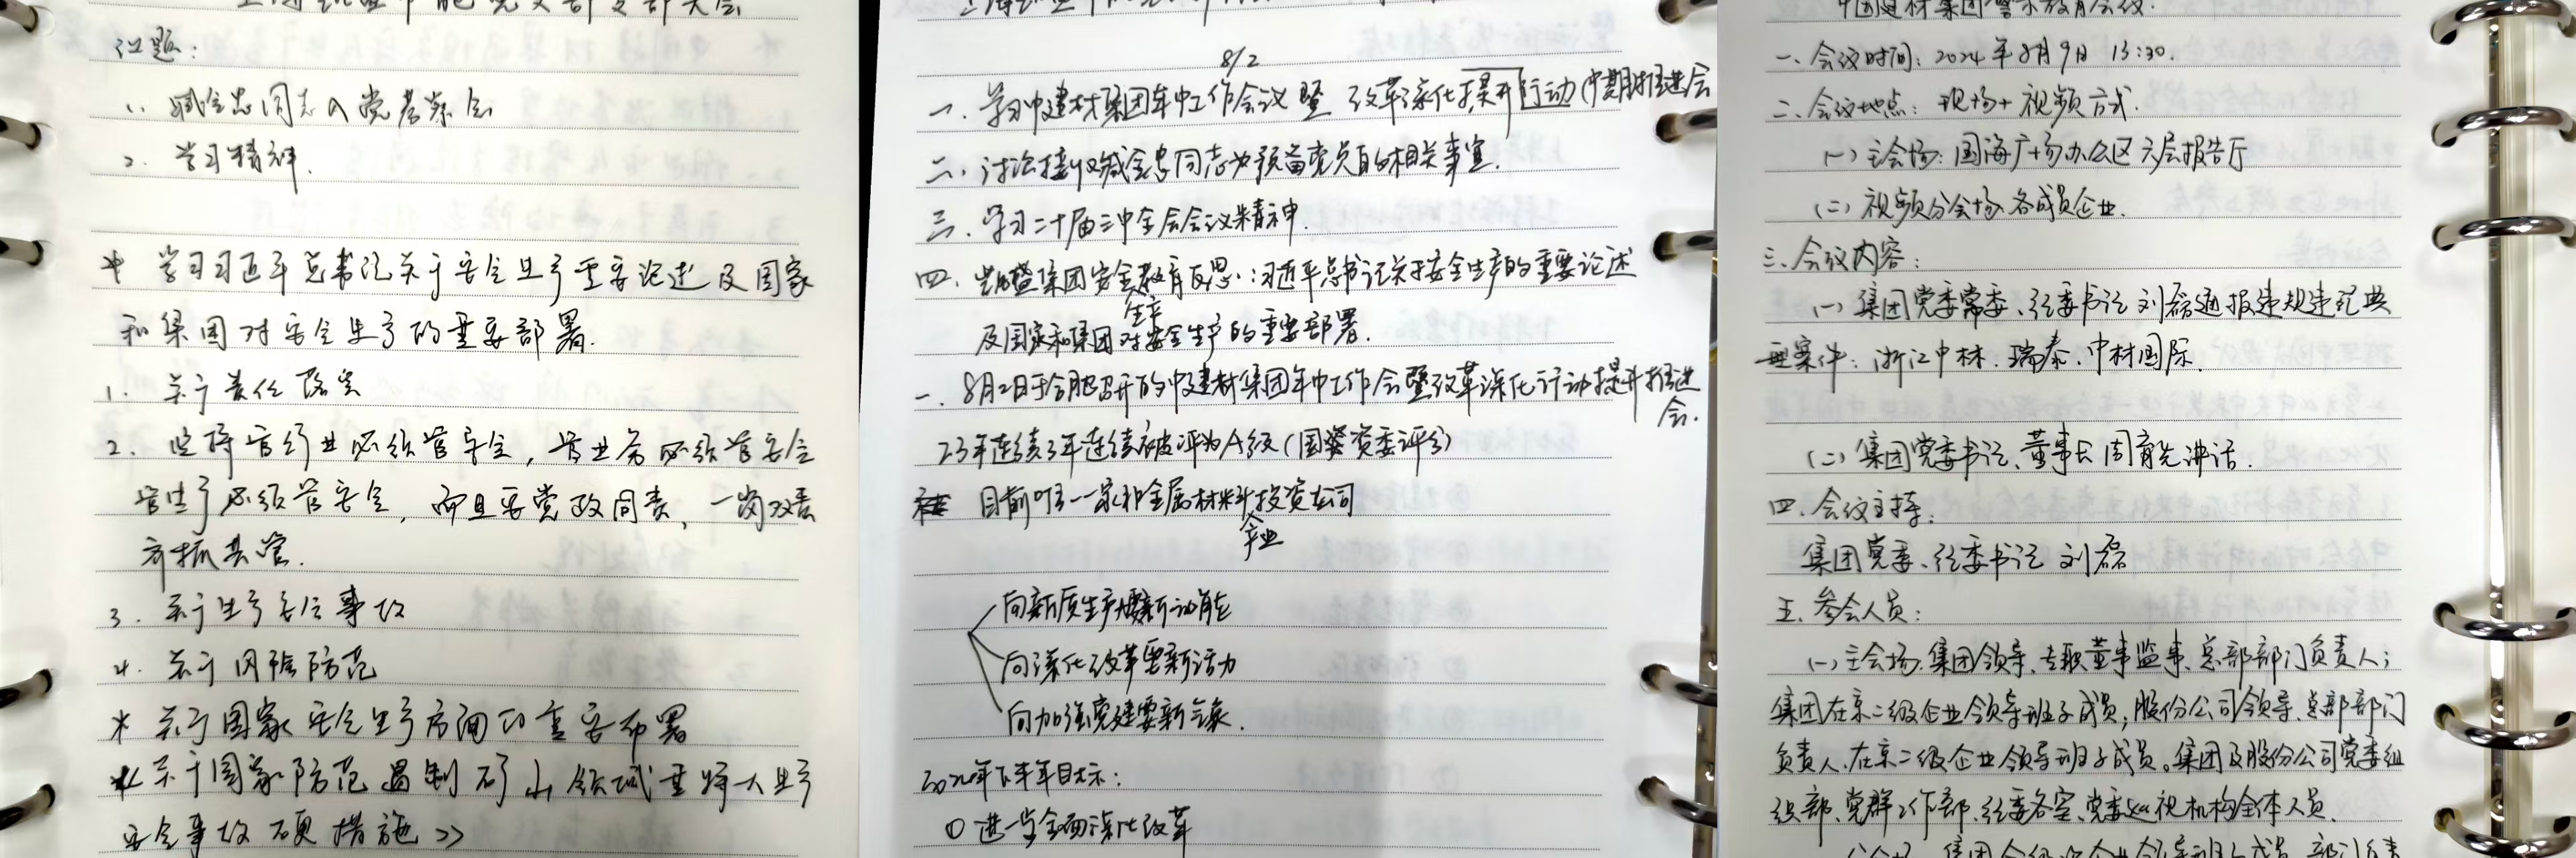 议题:
1. 臧金忠同志入党发展会
2. 学习精神.
* 学习习近平总书记关于安全生产重要论述及国家
和集团对安全生产的重要部署.
1. 关于责任落实
2. 坚持管行业必须管安全, 管业务必须管安全
管生产必须管安全, 而且要党政同责, 一岗双责
齐抓共管.
3. 关于生产安全事故
4. 关于风险防范
* 关于国家安全生产方面的重要布署
*《关于国家防范遏制矿山领域重特大生产
安全事故硬措施》
8/2
一. 学习中建材集团年中工作会议暨 改革深化提升行动(中期推进会
二. 讨论接收臧金忠同志为预备党员的相关事宜.
三. 学习二十届三中全会会议精神.
四. 凯盛集团安全教育反思:习近平总书记关于安全生产的重要论述
生产
及国家和集团对安全生产的重要部署.
一. 8月2日于合肥召开的中建材集团年中工作会暨改革深化行动提升推进
会.
23年连续3年连续被评为A级(国资委评分)
目前唯一一家非金属材料投资公司
企业
向新质生产要新动能
向深化改革要新活力
向加强党建要新气象.
2024年下半年目标:
① 进一步全面深化改革
中国建材集团警示教育会议.
一. 会议时间: 2024年8月9日 13:30.
二. 会议地点: 现场+视频方式.
(一) 主会场: 国海广场办公区六层报告厅
(二) 视频分会场: 各成员企业.
三. 会议内容:
(一) 集团党委常委、纪委书记刘磊通报违规违纪典
型案件: 浙江中材. 瑞泰. 中材国际.
(二) 集团党委书记、董事长周育先讲话.
四. 会议主持:
集团党委、纪委书记 刘磊
五. 参会人员:
(一) 主会场. 集团领导、专职董事监事、总部部门负责人;
集团在京二级企业领导班子成员; 股份公司领导、总部部门
负责人、在京二级企业领导班子成员。集团及股份公司党委组
织部、党群工作部、纪委各室、党委巡视机构全体人员.